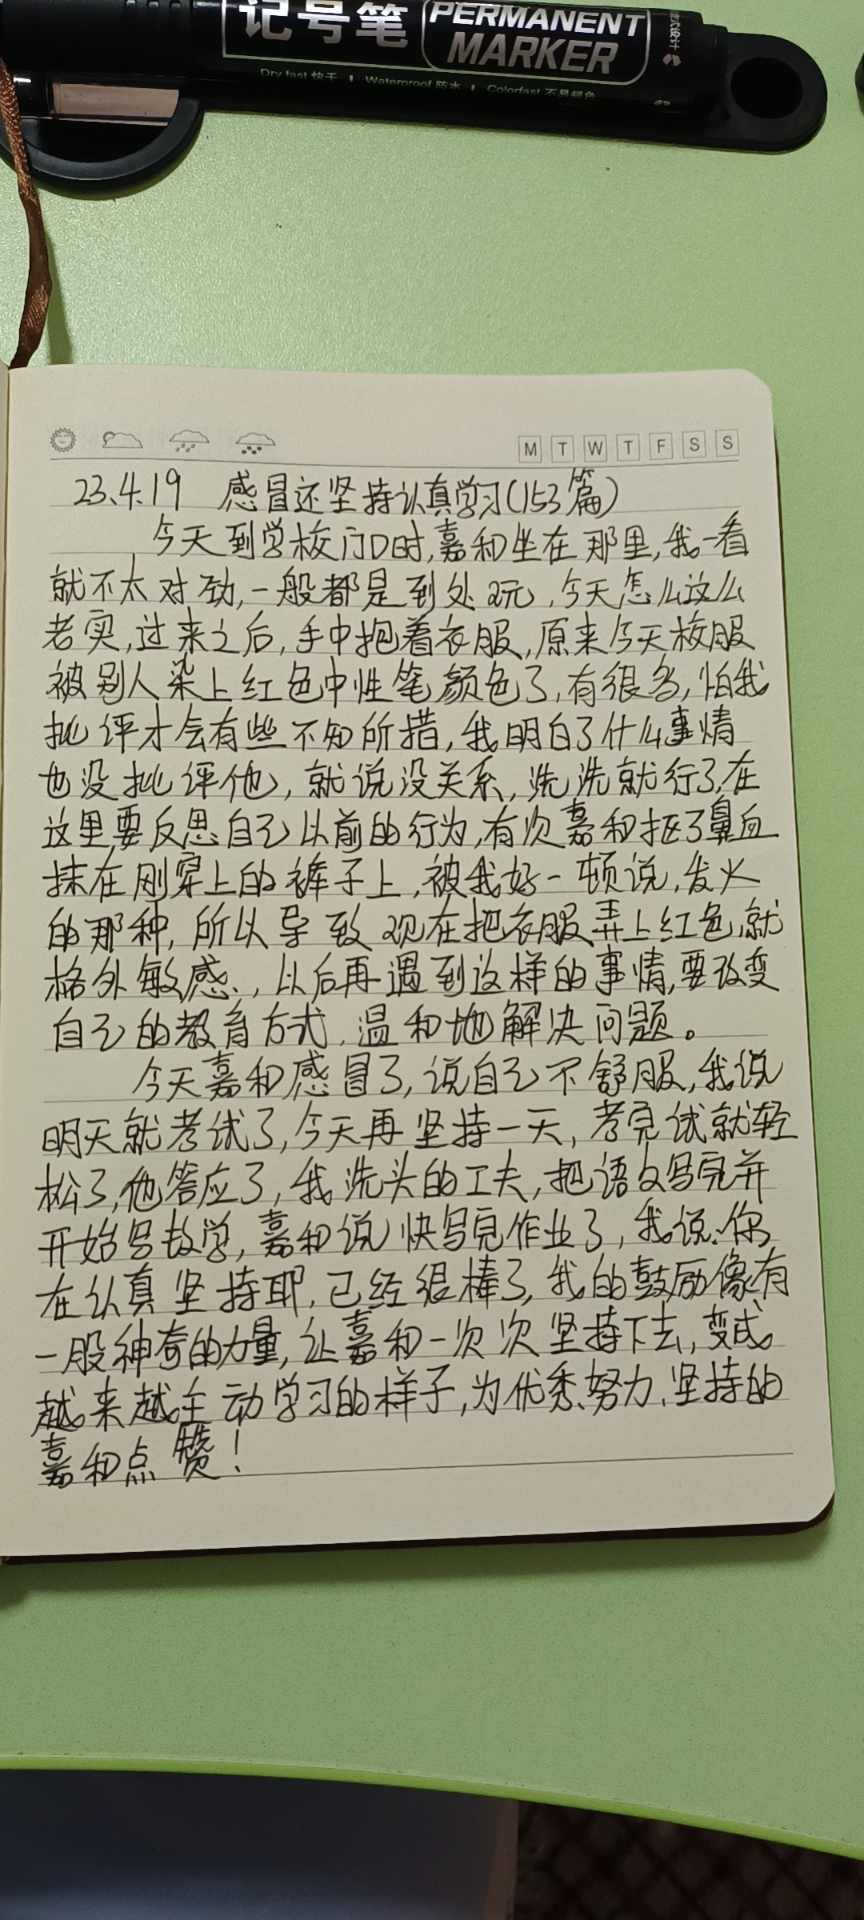 记号笔 PERMANENT MARKER
Dry fast 快干 | Waterproof 防水 | Colorfast 不易褪色
M T W T F S S
23.4.19 感冒还坚持认真学习(153篇)
今天到学校门口时,嘉和坐在那里,我一看
就不太对劲,一般都是到处玩,今天怎么这么
老实,过来之后,手中抱着衣服,原来今天校服
被别人染上红色中性笔颜色了,有很多,怕我
批评才会有些不知所措,我明白了什么事情
也没批评他,就说没关系,洗洗就行了,在
这里要反思自己以前的行为,有次嘉和抠了鼻血
抹在刚穿上的裤子上,被我好一顿说,发火
的那种,所以导致现在把衣服弄上红色,就
格外敏感,以后再遇到这样的事情,要改变
自己的教育方式,温和地解决问题。
今天嘉和感冒了,说自己不舒服,我说
明天就考试了,今天再坚持一天,考完试就轻
松了,他答应了,我洗头的工夫,把语文写完并
开始写数学,嘉和说快写完作业了,我说:你
在认真坚持耶,已经很棒了,我的鼓励像有
一股神奇的力量,让嘉和一次次坚持下去,变成
越来越主动学习的样子,为优秀、努力、坚持的
嘉和点赞!